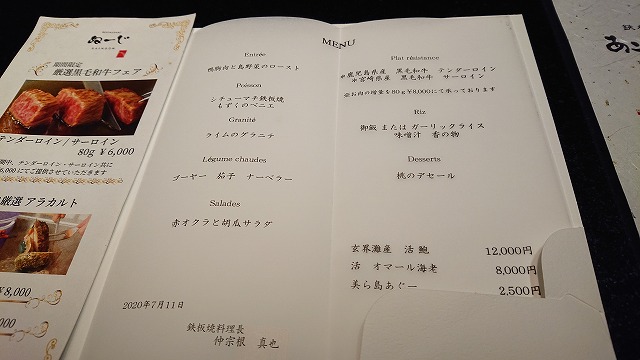 ぬーじ
期間限定
厳選黒毛和牛フェア
テンダーロイン/サーロイン
80g ¥6,000
期間中、テンダーロイン・サーロイン共に
6,000にてご提供させていただきます
厳選 アラカルト
¥8,000
MENU
Entrée
鴨胸肉と島野菜のロースト
Poisson
シチューマチ鉄板焼
もずくのベニエ
Granité
ライムのグラニテ
Légume chaudes
ゴーヤー 茄子 ナーベラー
Salades
赤オクラと胡瓜サラダ
2020年7月11日
鉄板焼料理長
仲宗根 真也
Plat résistance
※鹿児島県産 黒毛和牛 テンダーロイン
※宮崎県産 黒毛和牛 サーロイン
※お肉の増量を80g¥8,000にて承っております
Riz
御飯 または ガーリックライス
味噌汁 香の物
Desserts
桃のデセール
玄界灘産 活 鮑 12,000円
活 オマール海老 8,000円
美ら島あぐー 2,500円